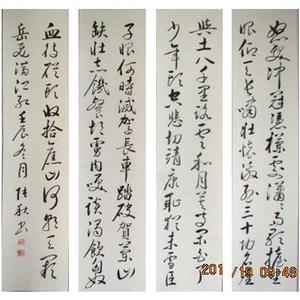 怒髮冲冠憑欄處瀟瀟雨歇擡望
眼仰天長嘯壯懷激烈三十功名塵
與土八千里路雲和月莫等閑白了
少年頭空悲切靖康恥猶未雪臣
子恨何時滅駕長車踏破賀蘭山
缺壯志饑餐胡虜肉笑談渴飲匈奴
血待從頭收拾舊山河朝天闕
岳飛滿江紅壬辰冬月佳秋書
09:48